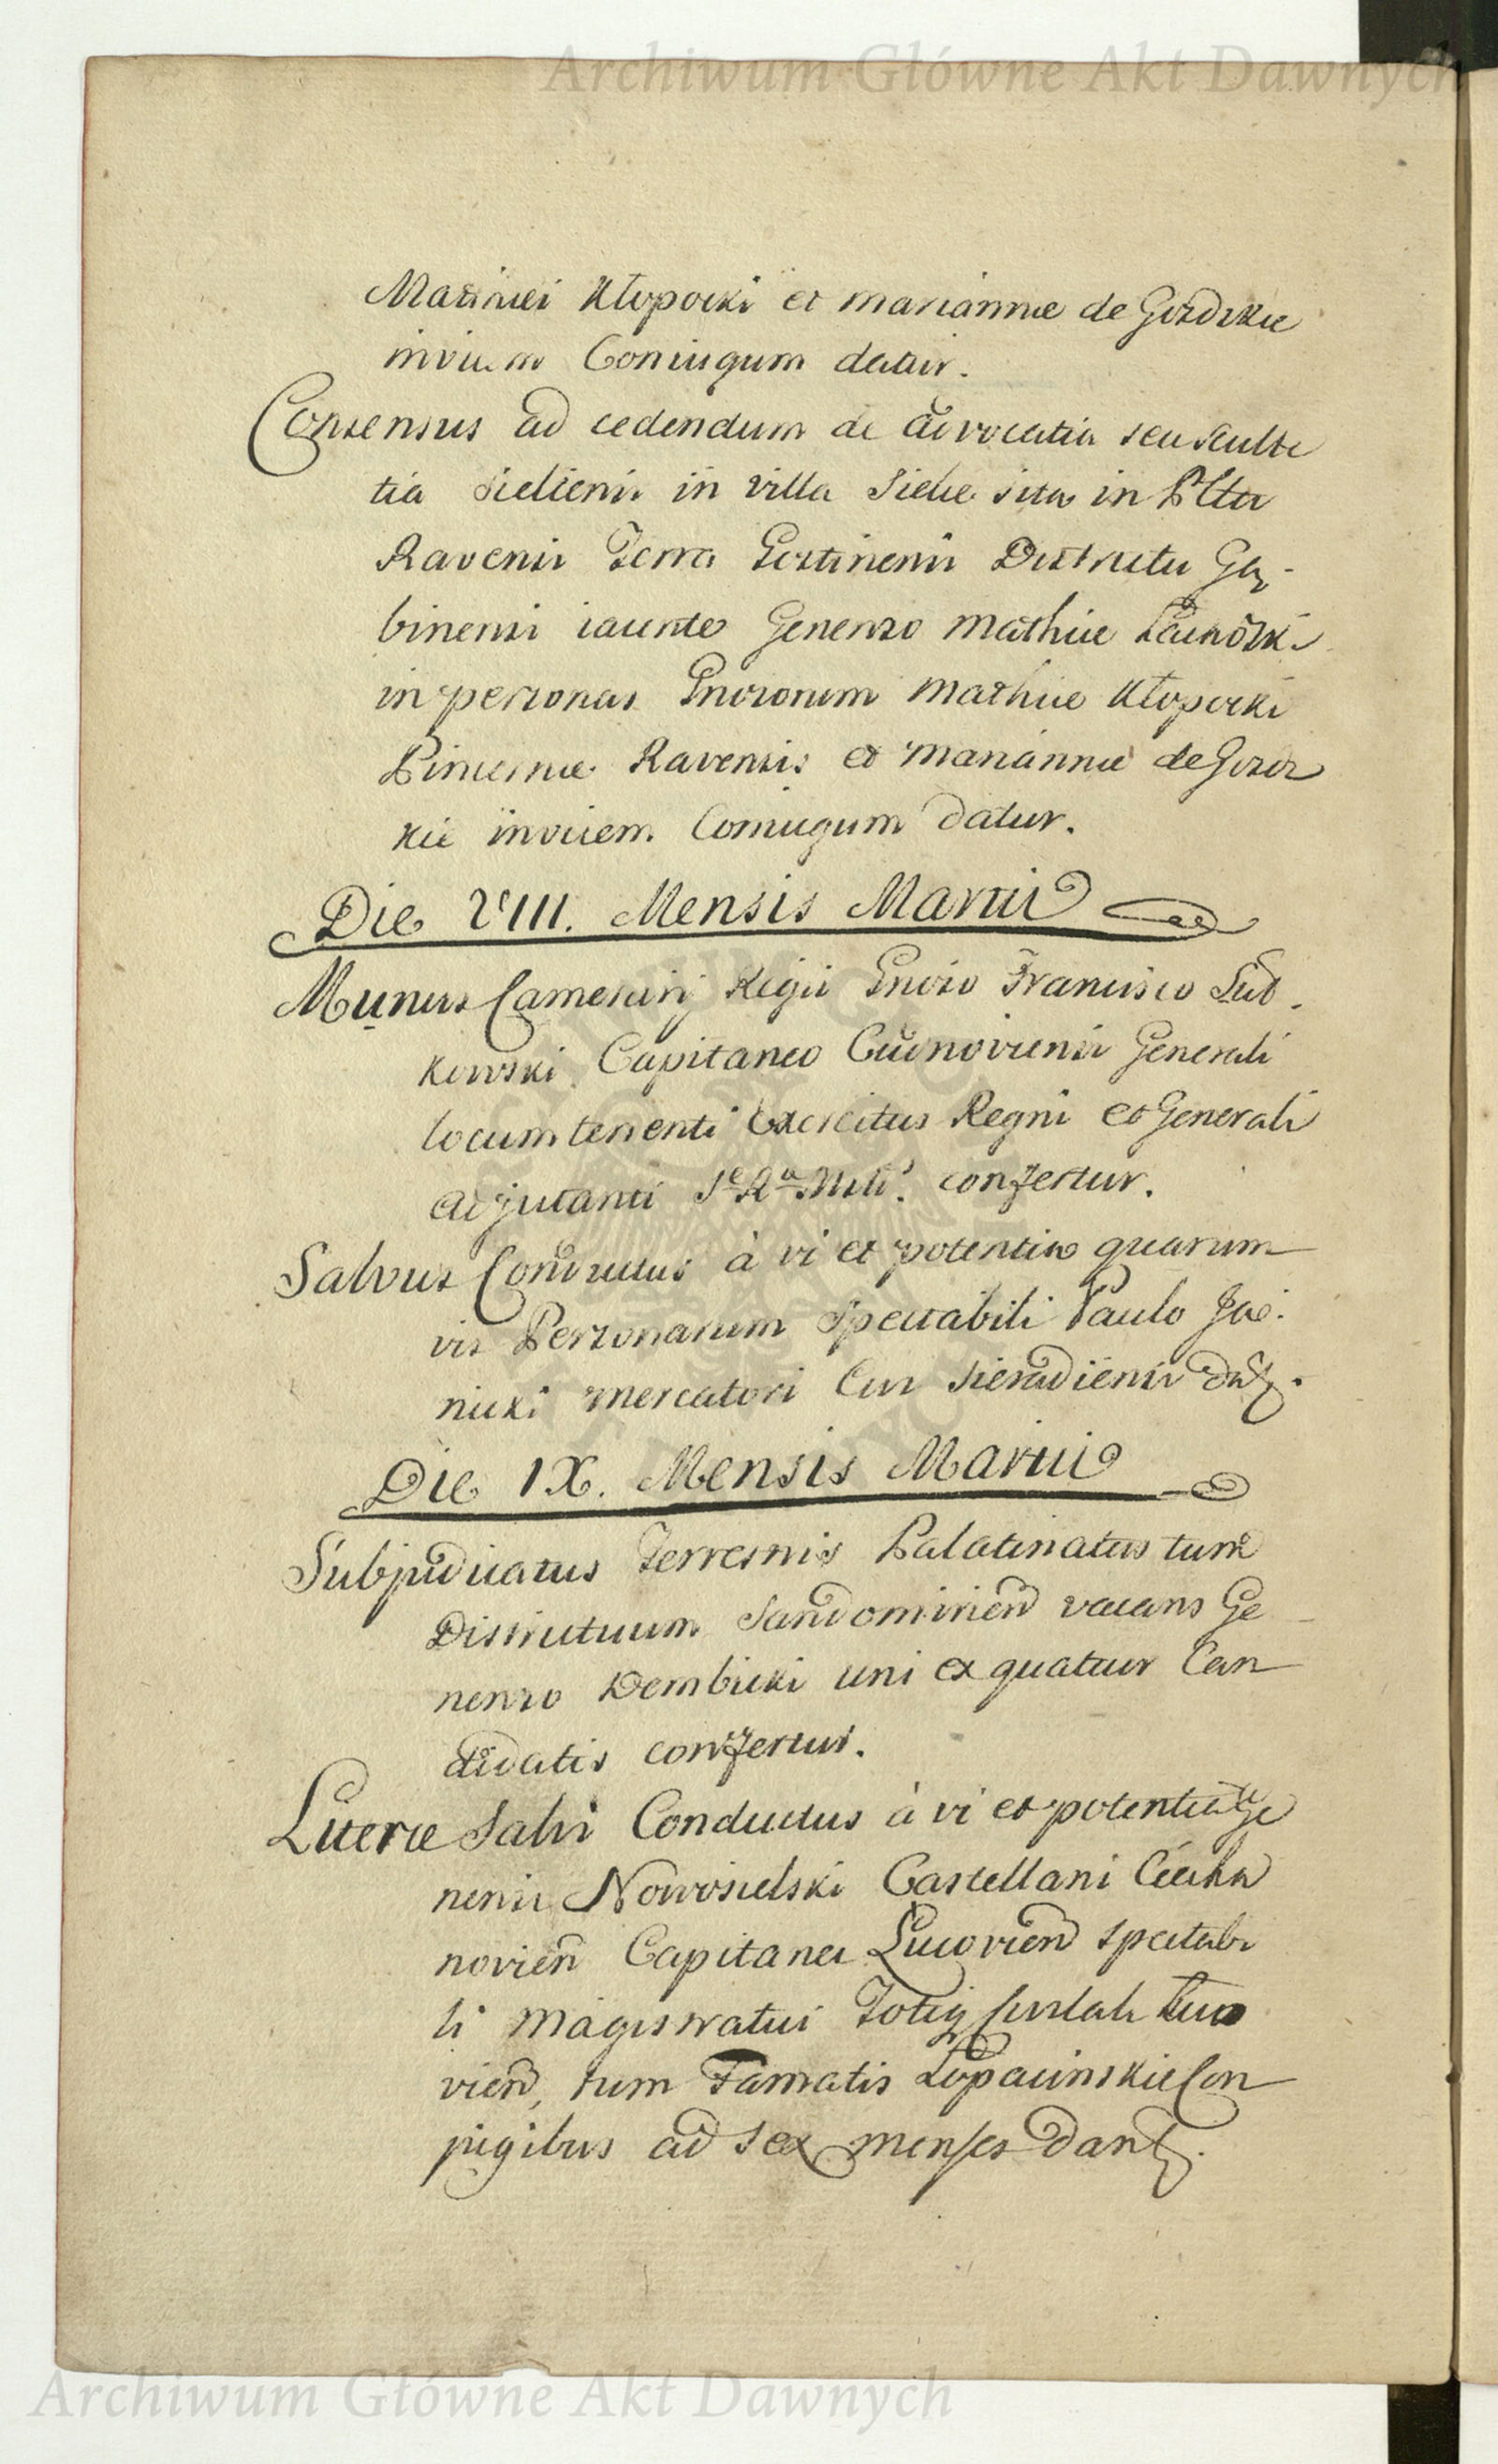 Archiwum Główne Akt Dawnych
Mathiæi Kłopocki et Mariannæ de Gozdzkie
invicem Coniugum datur.
Consensus ad cedendum de advocatia seu sculte
tia Sieliensi in villa Sielie sita in Plttu
Ravensi Terra Gostinensi Districtu Gą-
binensi iacente Generoso Mathiæ
in personas Gnosorum Mathiæ Kłopocki
Pincernæ Ravensis et Mariannæ de Gozdz
kie invicem Coniugum datur.
Die VIII. Mensis Martii
Munus Camerarij Regii Gnoso Francisco Sut
kowski Capitaneo Generali
locumtenenti Exercitus Regni et Generali
adjutanti Sæ Ræ Mtti confertur.
Salvus Conductus à vi et potentia quarum
vis Personarum Spectabili Paulo Joź.
nicki mercatori Civi Sieradiensi datq.
Die IX. Mensis Martii
Subjudicatus Terrestris Palatinatus tum
Districtuum Sandomirien vacans Ge
neroso Dembicki uni ex quatuor Can
didatis confertur.
Literæ Salvi Conductus à vi et potentia Ge
nerosi Nowosielski Castellani Ciecha
novien Capitanei Lucovien spectabi
li Magistratui Totiq Civitati Luco
vien, tum Famatis Łopacinskie Con
jugibus ad sex menses dantq.
Archiwum Główne Akt Dawnych